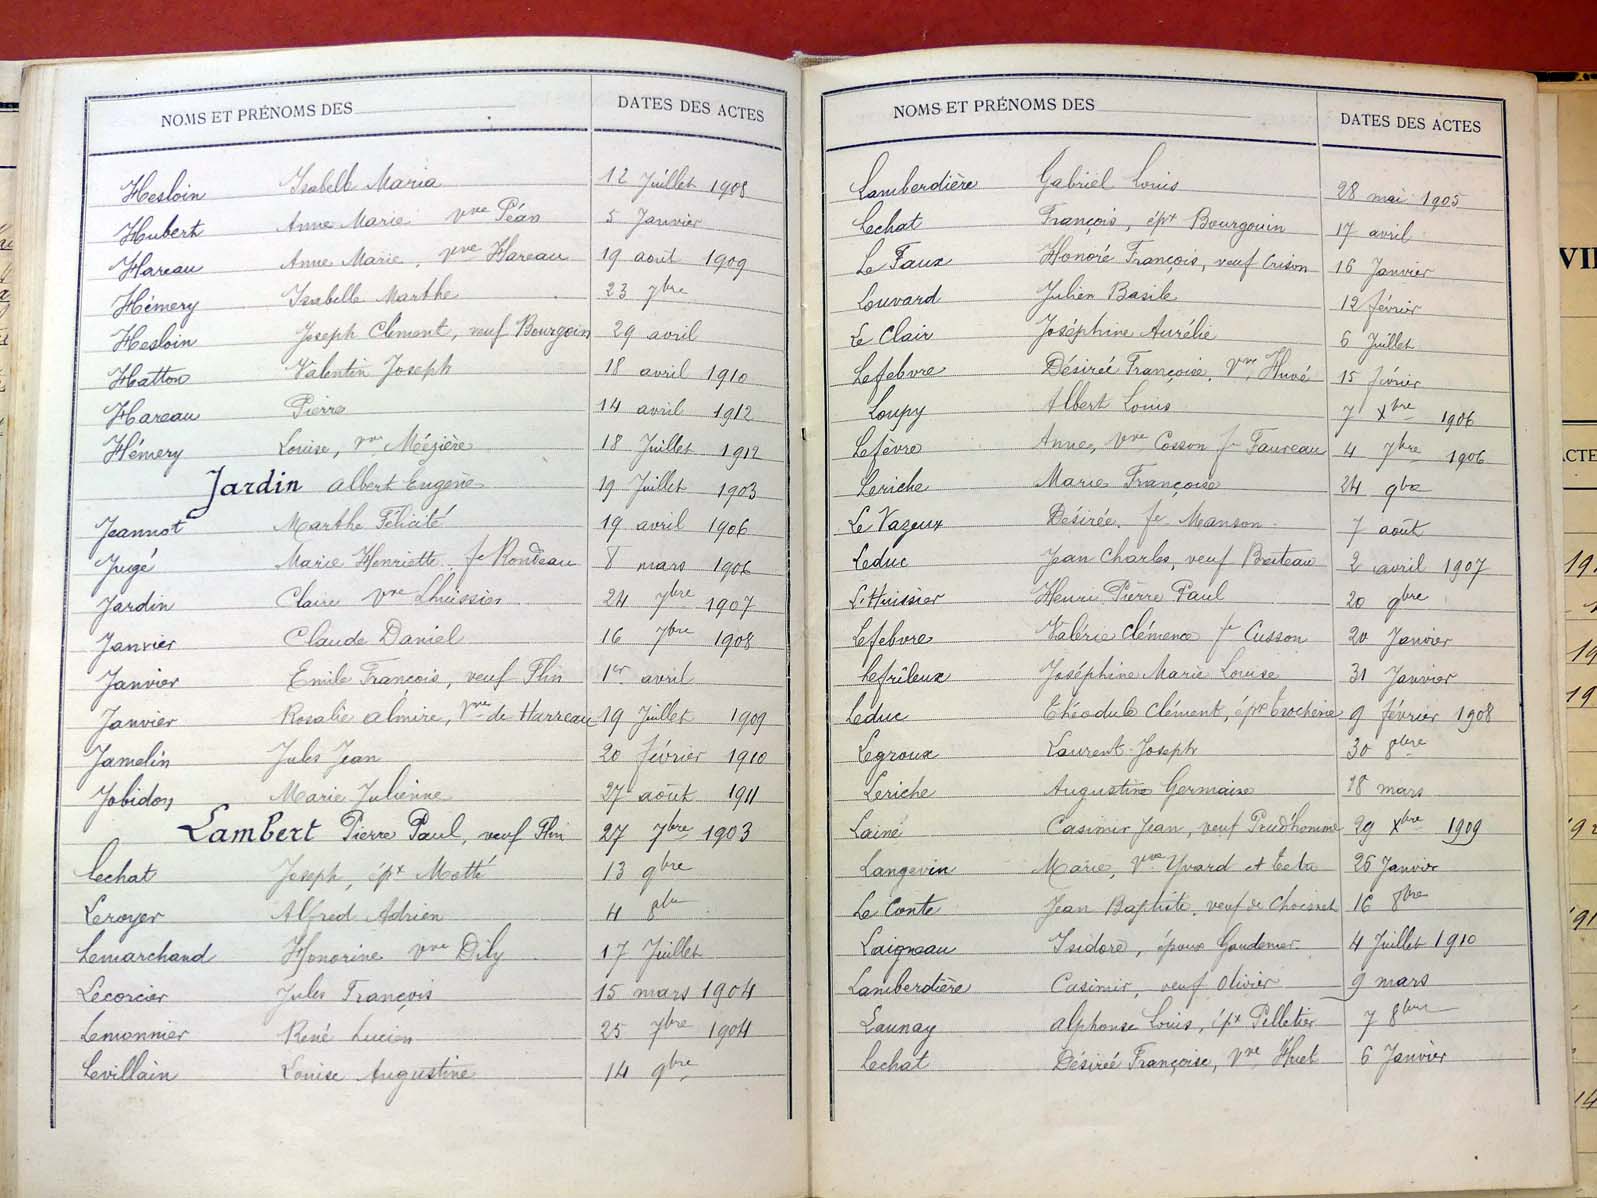 NOMS ET PRÉNOMS DES DATES DES ACTES
Hesloin Isabelle Maria 12 Juillet 1908
Hubert Anne Marie vve Péan 5 Janvier
Hareau Anne Marie, vve Hareau 19 août 1909
Hémery Isabelle Marthe 23 7bre
Hesloin Joseph Clément, veuf Bourgoin 29 avril
Hatton Valentin Joseph 18 avril 1910
Hareau Pierre 14 avril 1912
Hémery Louise, vve Mézière 18 Juillet 1912
Jardin Albert Eugène 19 Juillet 1903
Jeannot Marthe Félicité 19 avril 1906
Jugé Marie Henriette fe Rondeau 8 mars 1906
Jardin Claire vve Lhuissier 24 7bre 1907
Janvier Claude Daniel 16 7bre 1908
Janvier Emile François, veuf Flin 1er avril
Janvier Rosalie Almire, Vve de Harreau 19 Juillet 1909
Jamelin Jules Jean 20 février 1910
Jobidon Marie Julienne 27 août 1911
Lambert Pierre Paul, veuf Flin 27 7bre 1903
Lechat Joseph, épx Motté 13 9bre
Leroyer Alfred Adrien 4 8bre
Lemarchand Honorine vve Dily 17 Juillet
Lecorcier Jules François 15 mars 1904
Lemonnier René Lucien 25 7bre 1904
Levillain Louise Augustine 14 9bre
NOMS ET PRÉNOMS DES DATES DES ACTES
Lamberdière Gabriel Louis 28 mai 1905
Lechat François, épx Bourgouin 17 avril
Le Faux Honoré François, veuf Crison 16 Janvier
Louvard Julien Basile 12 février
Le Clair Joséphine Aurélie 6 Juillet
Lefebvre Désirée Françoise, Vve Huvé 15 février
Loupy Albert Louis 7 Xbre 1906
Lefèvre Anne, vve Cosson fe Faureau 4 7bre 1906
Leriche Marie Françoise 24 9bre
Le Vazeux Désirée fe Manson 7 août
Leduc Jean Charles, veuf Bruteau 2 avril 1907
L'Huissier Henri Pierre Paul 20 9bre
Lefebvre Valérie Clémence fe Cusson 20 Janvier
Lefrileux Joséphine Marie Louise 31 Janvier
Leduc Théodule Clément, épx 9 février 1908
Legroux Laurent Joseph 30 8bre
Leriche Augustine Germaine 18 mars
Lainé Casimir Jean, veuf Prud'homme 29 Xbre 1909
Langevin Marie, Vve Yvard et 26 Janvier
Le Conte Jean Baptiste, veuf de Choisnet 16 8bre
Laigneau Isidore, époux Gaudemer 4 Juillet 1910
Lamberdière Casimir, veuf Olivier 9 mars
Launay Alphonse Louis, épx Pelletier 7 8bre
Lechat Désirée Françoise, Vve Huet 6 Janvier